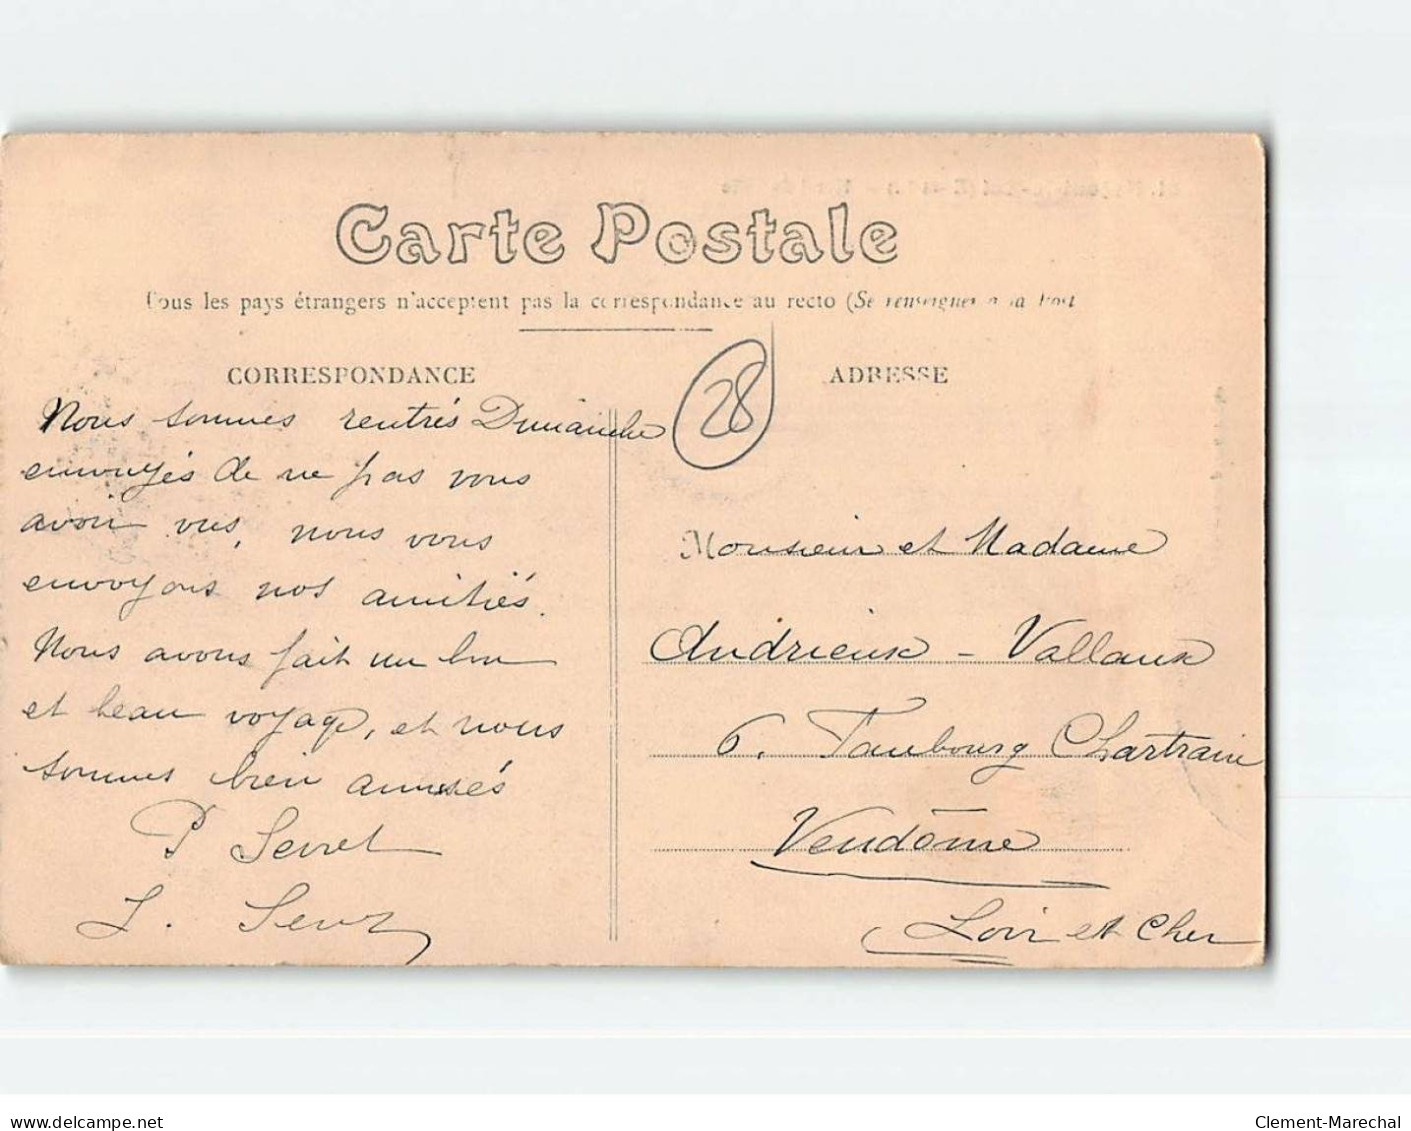 Carte Postale
Tous les pays étrangers n'acceptent pas la correspondance au recto (Se renseigner à la Post
CORRESPONDANCE
Nous sommes rentrés Dimanche
ennuyés de ne pas vous
avoir vus, nous vous
envoyons nos amitiés.
Nous avons fait un bon
et beau voyage, et nous
sommes bien amusés
P Serret
J. Serr
28
ADRESSE
Monsieur et Madame
Andrieux - Vallaux
6. Faubourg Chartrain
Vendôme
Loir et Cher
www.delcampe.net
Clement-Marechal